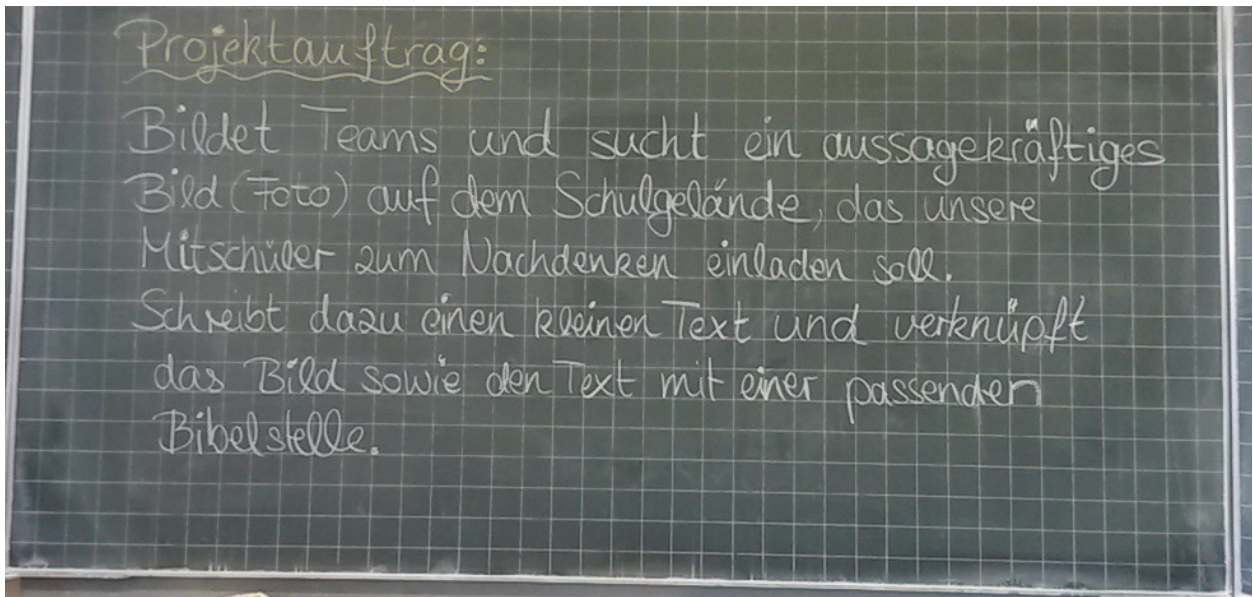 Projektauftrag:
Bildet Teams und sucht ein aussagekräftiges
Bild (Foto) auf dem Schulgelände, das unsere
Mitschüler zum Nachdenken einladen soll.
Schreibt dazu einen kleinen Text und verknüpft
das Bild sowie den Text mit einer passenden
Bibelstelle.